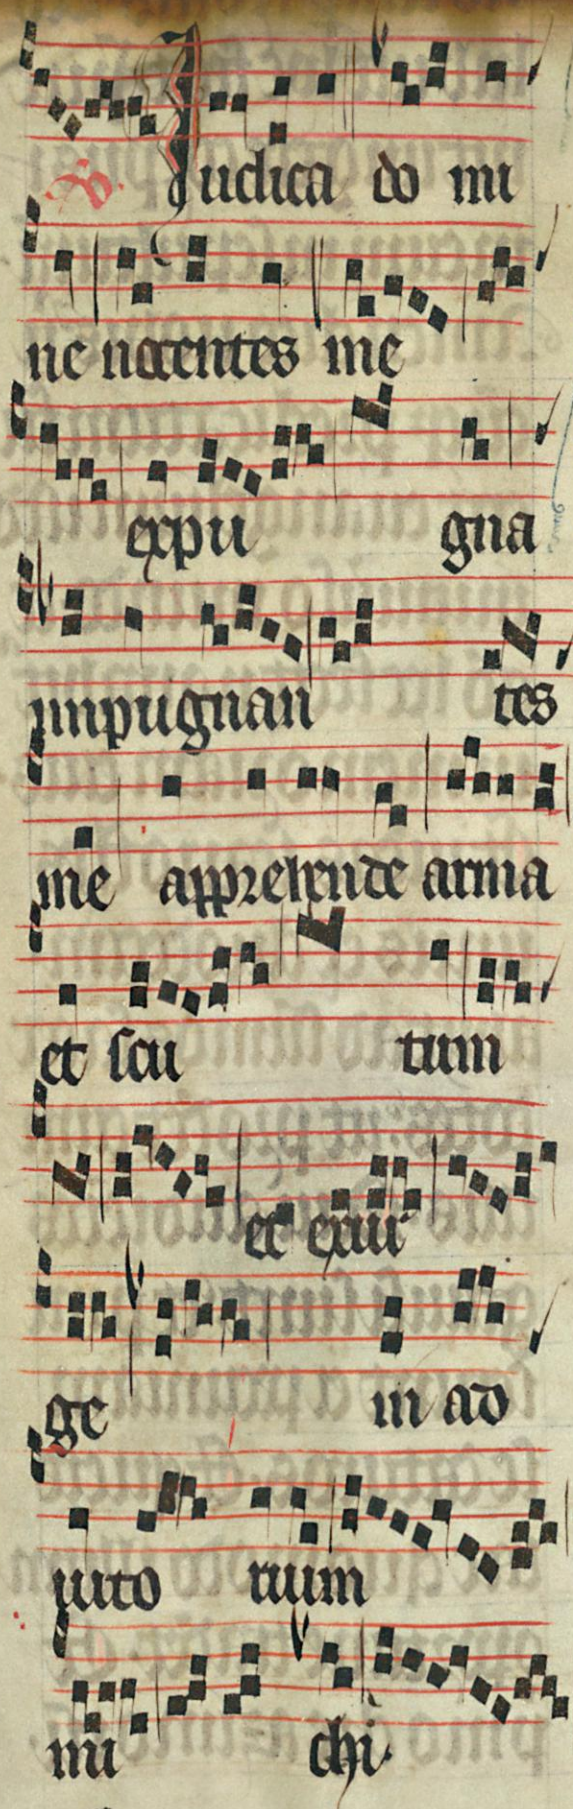 V. Iudica do mi
ne nocentes me
expu gna
impugnan tes
me apprehende arma
et scu tum
et exur
ge in ad
iuto rium
mi chi.